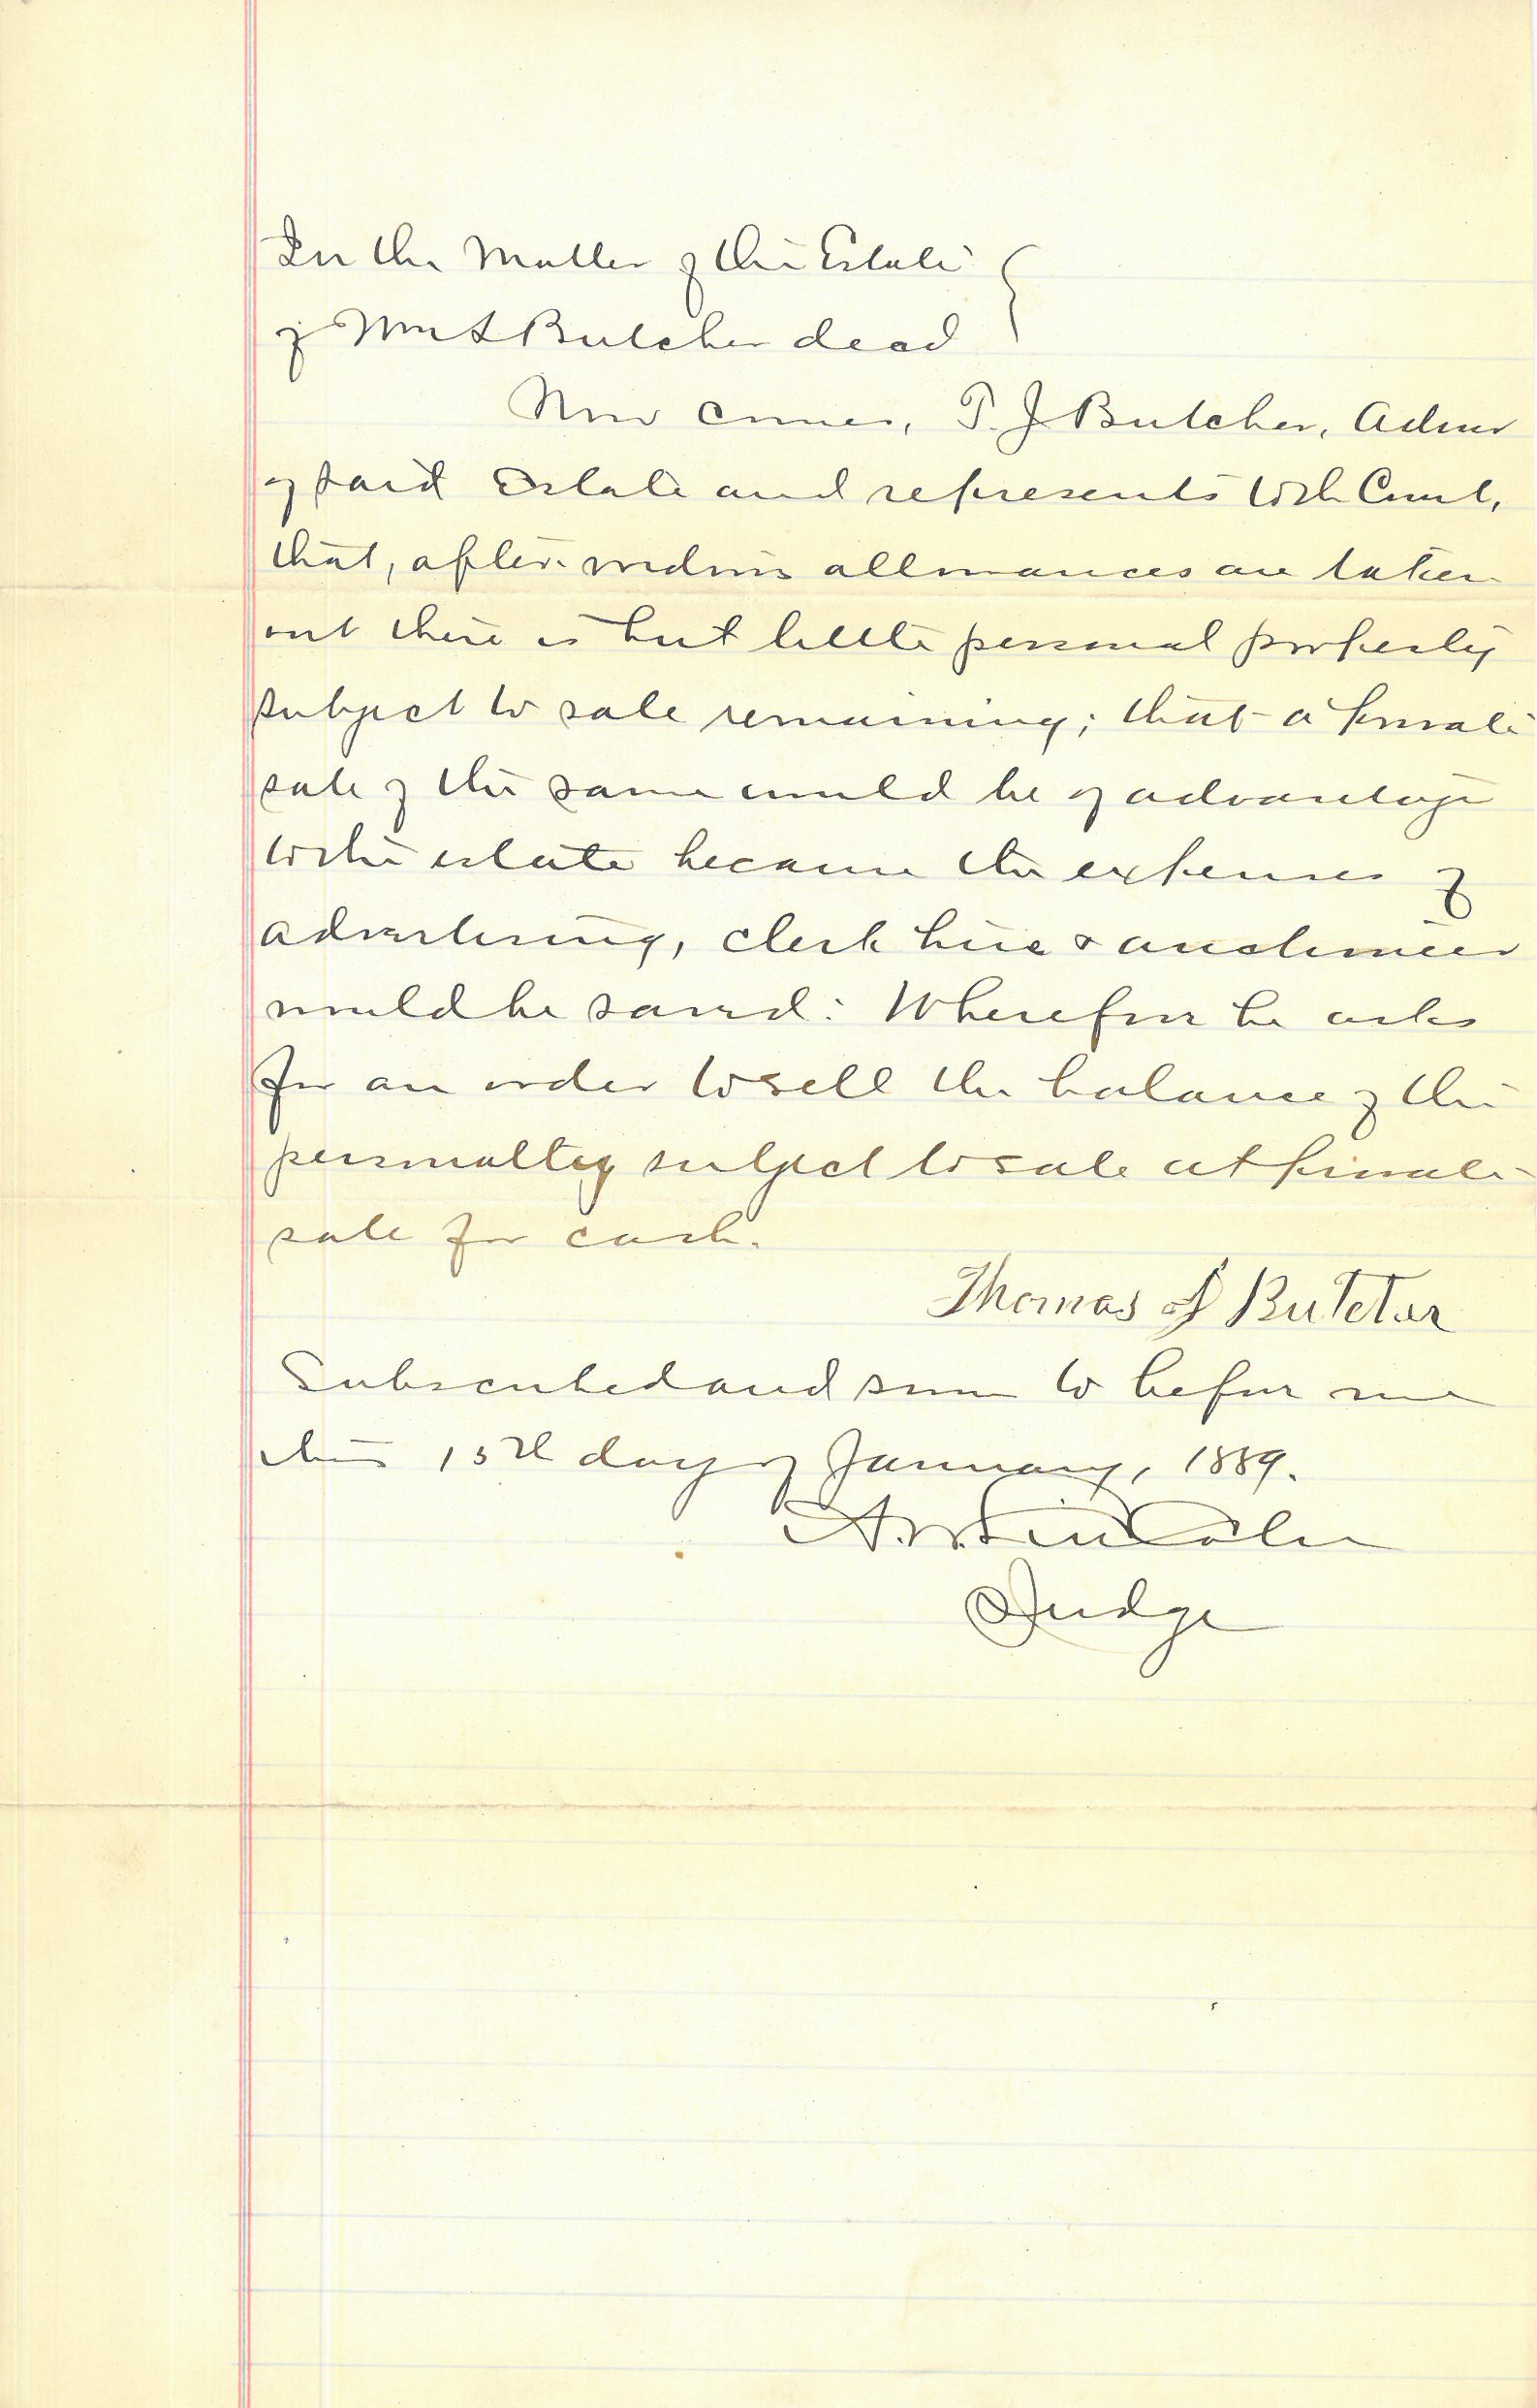 In the Matter of the Estate
of Wm S Butcher decd
Now comes, T. J Butcher, Admr
of said Estate and represents to the Court,
that, after widow's allowances are taken
out there is but little personal property
subject to sale remaining; that a private
sale of the same would be of advantage
to the estate because the expenses of
advertising, clerk hire & auctioneer
would be saved: Wherefore he asks
for an order to sell the balance of the
personalty subject to sale at private
sale for cash.
Thomas J Butcher
Subscribed and sworn to before me
this 15th day of January, 1889.
A. W. Lincoln
Judge